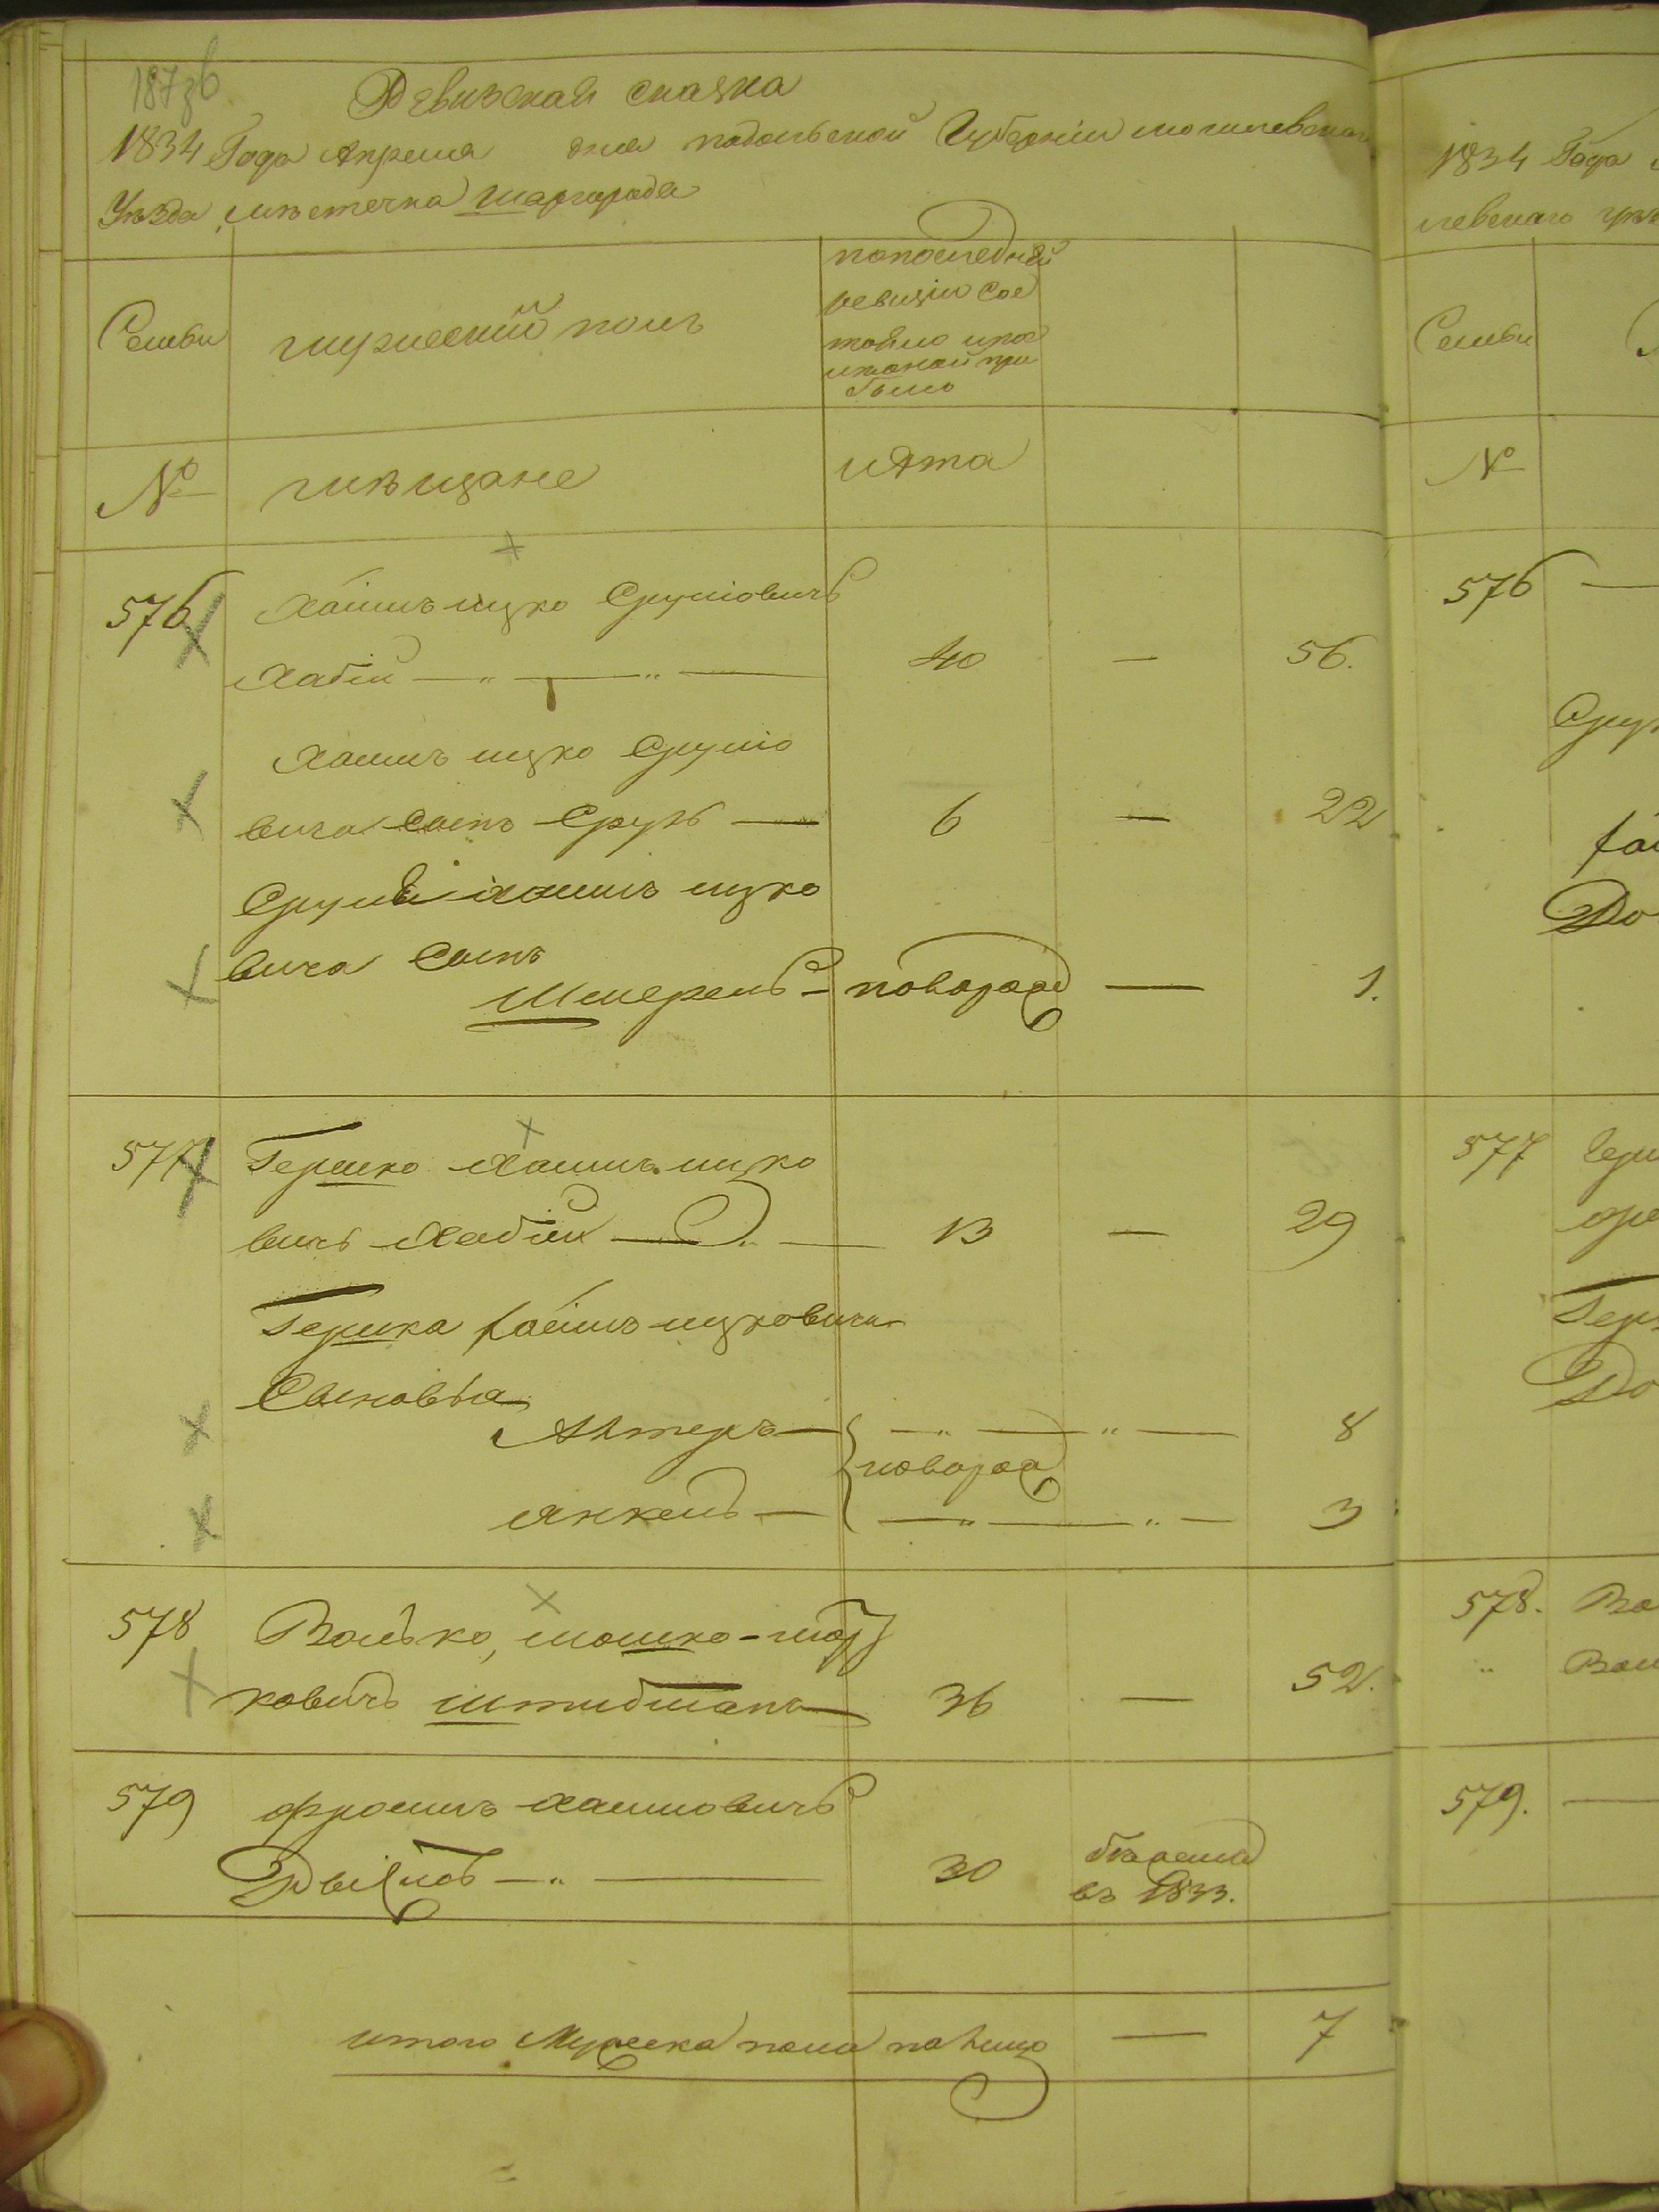 187 зв
Ревизская сказка
1834 Года Апреля дня подольской Губернии могилевскаго
Уезда, местечка Шаргорода
Семьи
мужеский полъ
попоследней
ревизiи сос
тояло и по
было
№
мѣщане
и лета
576
Хаимъ ицко Сруліовичъ
Хабій — „ — „ —
40 — 56.
Хаимъ ицко Сруліо
вича Сынъ Сруль —
6 — 22
Сруля Хаимъ ицко
вича Сынъ
Шмерель — новорож — 1.
577
Гершко Хаимъ ицко
вичъ Хабій —
13 — 29
Гершка Хаимъ ицковича
Сыновья
Алтеръ — „ — „ — 8
новорож
Янкель — „ — „ — 3
578
Волько, мошко-мор
ковичъ Штидманъ
36 — 52.
579
фроимъ Хаимовичъ
30
въ 1833.
итого Мужеска пола налицо — 7
1834 Года
левскаго уѣз
Семьи
№
576 —
Срул
хаи
До
577 Герш
Герш
До
578. Во
„ Вол
579. —